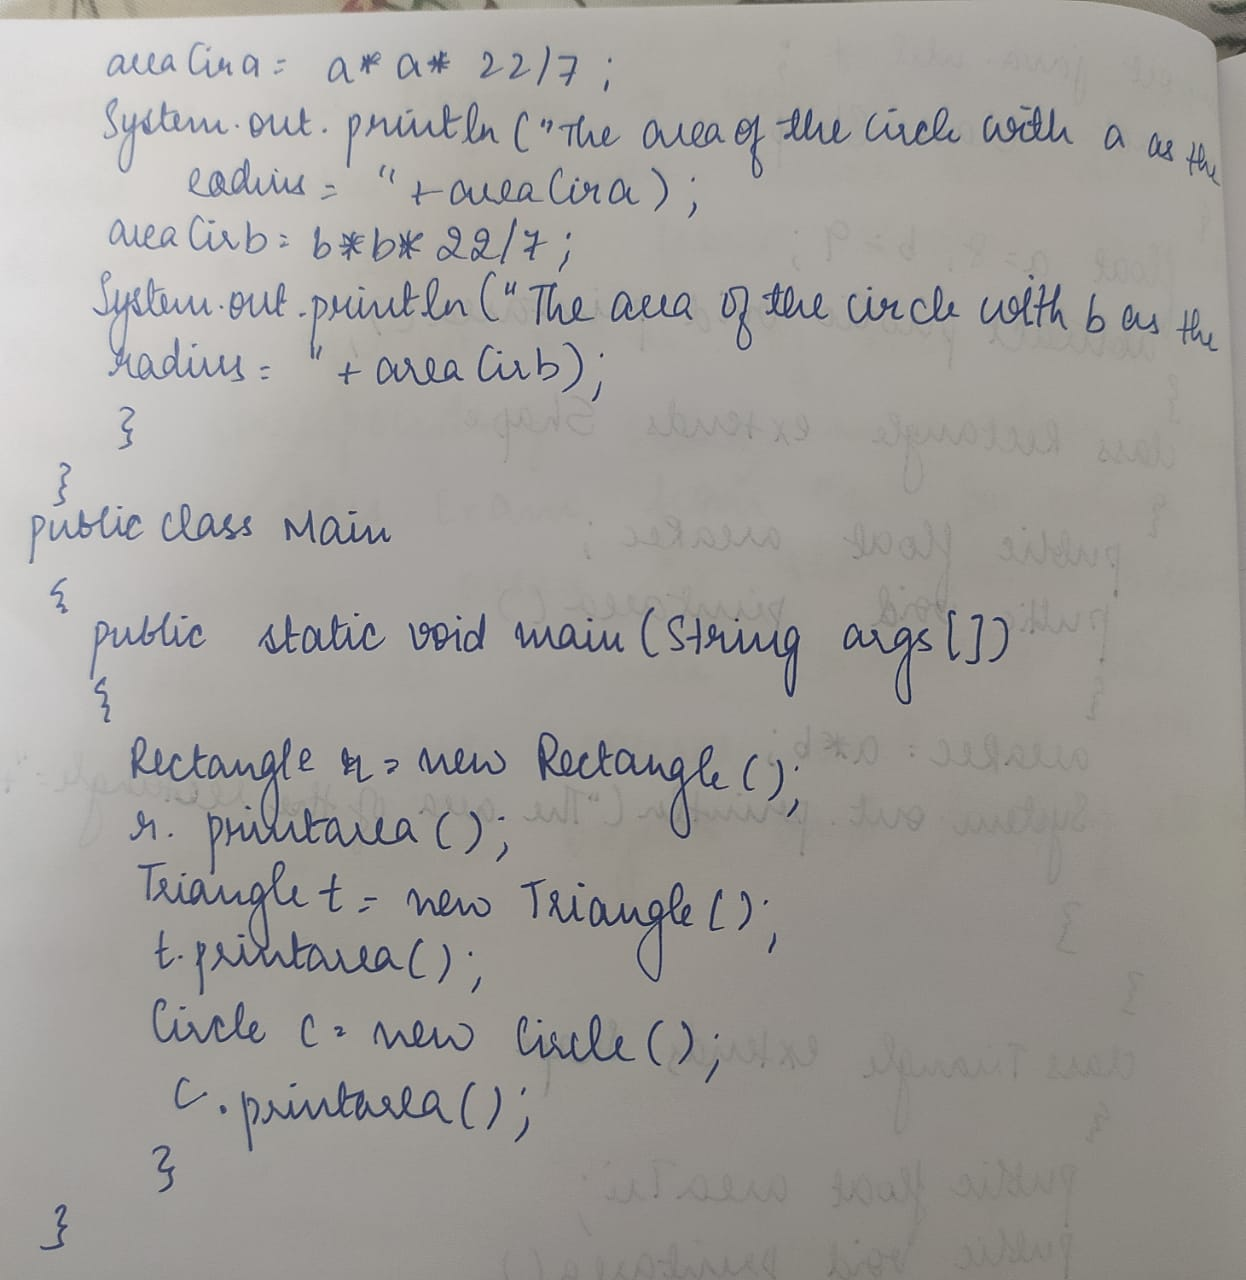 areaCira = a* a* 22/7 ;
System.out. println ("The area of the circle with a as the
radius = " + areaCira) ;
areaCirb = b*b* 22/7 ;
System.out.println ("The area of the circle with b as the
radius = " + areaCirb) ;
}
}
public class Main
{
public static void main (String args[])
{
Rectangle r = new Rectangle () ;
r. printarea () ;
Triangle t = new Triangle () ;
t.printarea () ;
Circle c = new Circle () ;
c.printarea () ;
}
}